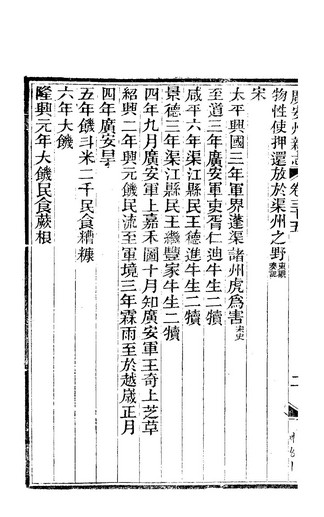 廣安州新志 卷三十五
物性使押還放於渠州之野
宋
太平興國三年軍界蓬渠諸州虎為害宋史
至道三年廣安軍吏胥仁迪牛生二犢
咸平六年渠江縣民王德進牛生二犢
景德三年渠江縣民王繼豐家牛生二犢
四年九月廣安軍上嘉禾圖十月知廣安軍王奇上芝草
紹興二年興元饑民流至軍境三年霖雨至於越嵗正月
四年廣安旱
五年饑斗米二千民食糟糠
六年大饑
隆興元年大饑民食蕨根
二